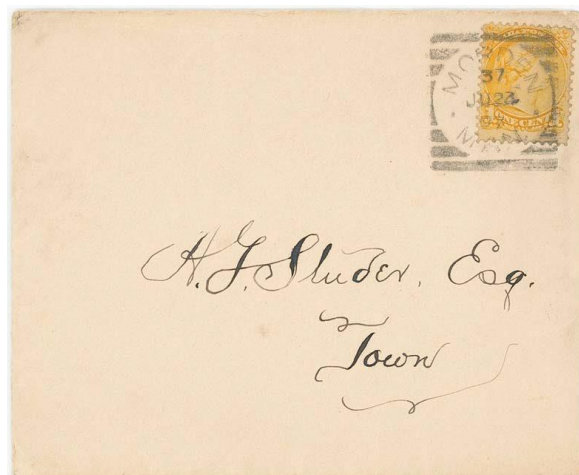 MORDEN
37
JU 24
MAN
ONE CENT
H. J. Studer, Esq.
Town